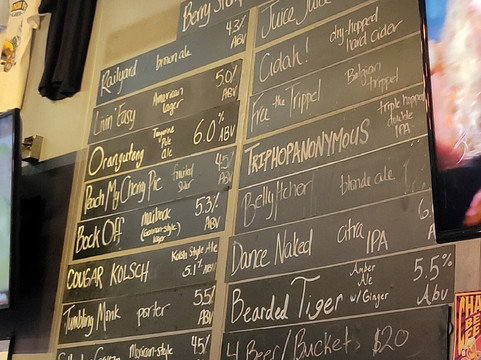 Berry
4.3/
ABV
Railyard brown ale
5.0/
ABV
Livin' Easy American lager
6.0%
ABV
Orangutong Tangerine Pale ale
Peach My Cherry Pie fruited sour 4.5/
ABV
Bock Off maibock (German-style) lager 5.3/
ABV
COUGAR KOLSCH Kolsh Style Ale 5.1% ABV
Tumbling Monk porter 5.5%
ABV
Mexican-style 4.5/
Juice Juice
Cidah! dry-hopped hard cider
Free the Trippel Belgian trippel
TRIPHOPANONYMOUS triple hopped double IPA
Belly Itcher blonde ale
Dance Naked citra IPA 6.
Bearded Tiger Amber Ale w/Ginger 5.5%
ABV
4 Beer/Bucket $20